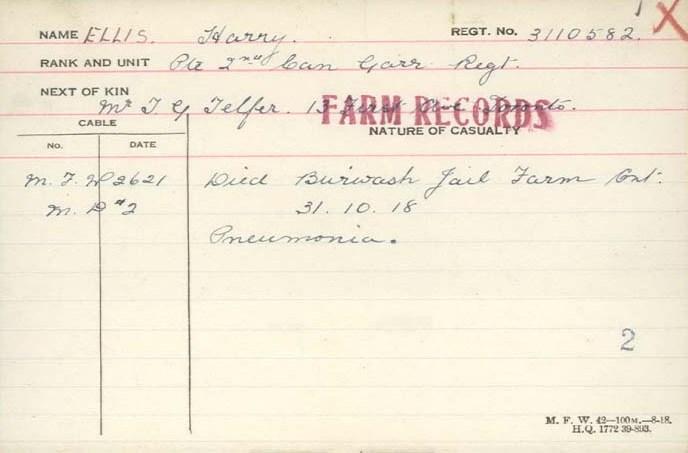 NAME ELLIS. Harry. REGT. No. 3110582.
RANK AND UNIT Pte 2nd Can Garr Regt.
NEXT OF KIN
Mr T. G Telfer. 13 First Ave Toronto.
FARM RECORDS
CABLE NATURE OF CASUALTY
No. DATE
M. F. W 2621 Died Burwash Jail Farm Ont.
M. D #2 31. 10. 18
Pneumonia.
2
M. F. W. 42—100M.—8-18.
H.Q. 1772 39-893.